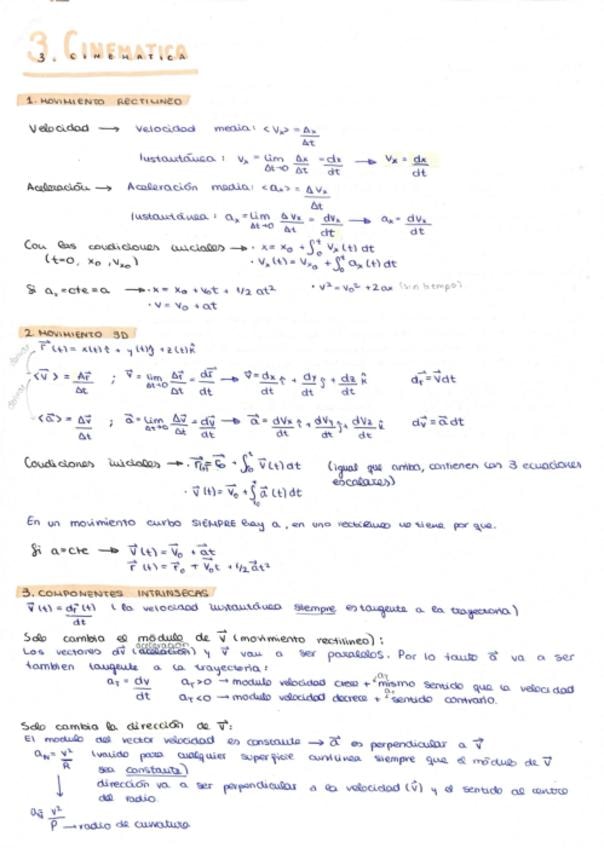 3. CINEMATICA
3. CINEMATICA
1. MOVIMIENTO RECTILINEO
Velocidad → Velocidad media: <Vx> = Δx/Δt
Instantánea: Vx = lim Δt→0 Δx/Δt = dx/dt → Vx = dx/dt
Aceleración → Aceleración media: <ax> = ΔVx/Δt
Instantánea: ax = lim Δt→0 ΔVx/Δt = dVx/dt → ax = dVx/dt
Con las condiciones iniciales → · x = x₀ + ∫₀ᵗ Vx(t) dt
(t=0, x₀, Vx₀) · Vx(t) = Vx₀ + ∫₀ᵗ ax(t) dt
Si ax = cte = a → · x = x₀ + V₀t + 1/2 at² · V² = V₀² + 2ax (sin tiempo)
· V = V₀ + at
2. MOVIMIENTO 3D
r⃗(t) = x(t)î + y(t)ĵ + z(t)k̂
derivar
<V⃗> = Δr⃗/Δt ; V⃗ = lim Δt→0 Δr⃗/Δt = dr⃗/dt → V⃗ = dx/dt î + dy/dt ĵ + dz/dt k̂ dr⃗ = V⃗dt
derivar
<a⃗> = ΔV⃗/Δt ; a⃗ = lim Δt→0 ΔV⃗/Δt = dV⃗/dt → a⃗ = dVx/dt î + dVy/dt ĵ + dVz/dt k̂ dV⃗ = a⃗ dt
Condiciones iniciales → · r⃗(t) = r⃗₀ + ∫₀ᵗ V⃗(t) dt (igual que arriba, contienen las 3 ecuaciones
escalares)
· V⃗(t) = V⃗₀ + ∫₀ᵗ a⃗(t) dt
En un movimiento curbo SIEMPRE hay a, en uno rectilineo no tiene por que.
Si a = cte → V⃗(t) = V⃗₀ + a⃗t
r⃗(t) = r⃗₀ + V⃗₀t + 1/2 a⃗t²
3. COMPONENTES INTRINSECAS
V⃗(t) = dr⃗(t)/dt (la velocidad instantánea siempre es tangente a la trayectoria)
Solo cambia el módulo de V⃗ (movimiento rectilineo):
aceleración
Los vectores dV⃗ (acelación) y V⃗ van a ser paralelos. Por lo tanto a⃗ va a ser
tambien tangente a la trayectoria:
aT = dV/dt aT>0 → modulo velocidad crece + aT mismo sentido que la velocidad
aT<0 → modulo velocidad decrece + aT sentido contrario.
Solo cambia la dirección de V⃗:
El modulo del vector velocidad es constante → a⃗ es perpendicular a V⃗
aN = V²/R (valido para cualquier superficie curvilinea siempre que el módulo de V⃗
sea constante)
dirección va a ser perpendicular a la velocidad (V⃗) y el sentido al centro
del radio.
aN = V²/ρ → radio de curvatura